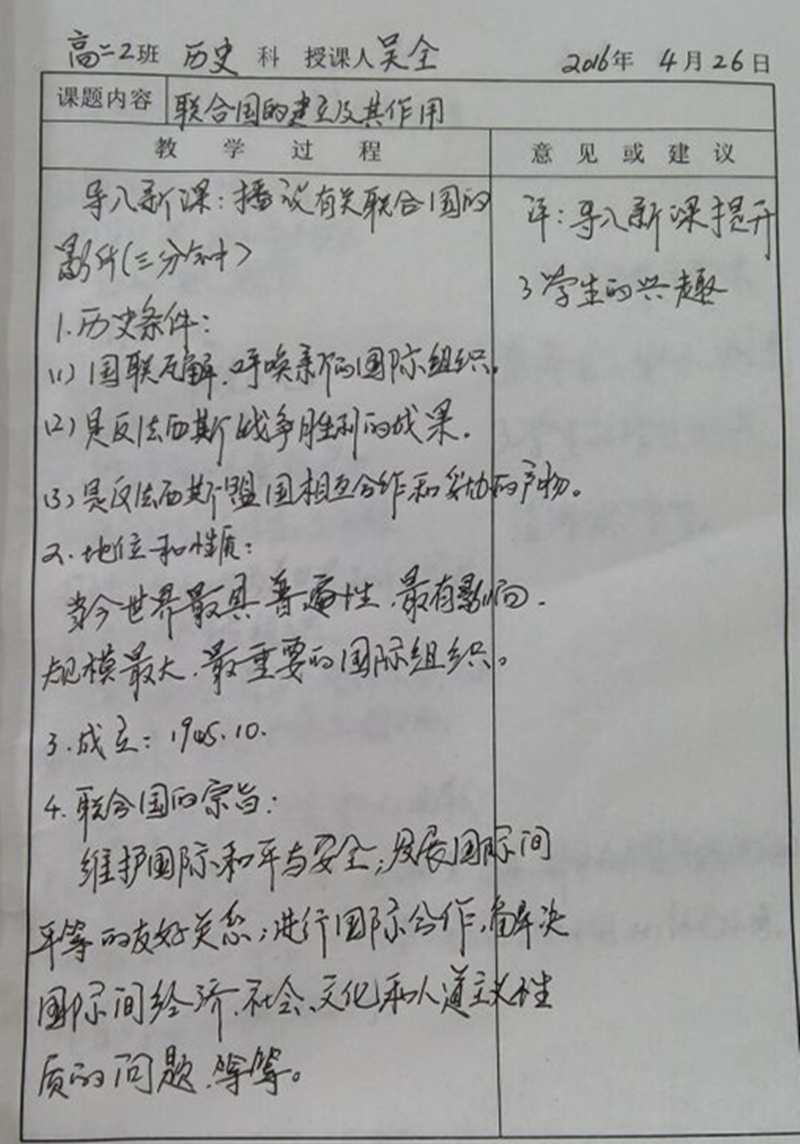 高二2班 历史 科 授课人吴全 2016年 4月26日
课题内容 联合国的建立及其作用
教学过程 意见或建议
导入新课：播放有关联合国的
影片(三分钟)
评：导入新课提升
了学生的兴趣
1.历史条件：
(1) 国联瓦解、呼唤新的国际组织。
(2) 是反法西斯战争胜利的成果.
(3) 是反法西斯盟国相互合作和妥协的产物。
2.地位和性质：
当今世界最具普遍性、最有影响、
规模最大、最重要的国际组织。
3.成立：1945.10.
4.联合国的宗旨：
维护国际和平与安全；发展国际间
平等的友好关系；进行国际合作，解决
国际间经济、社会、文化和人道主义性
质的问题、等等。